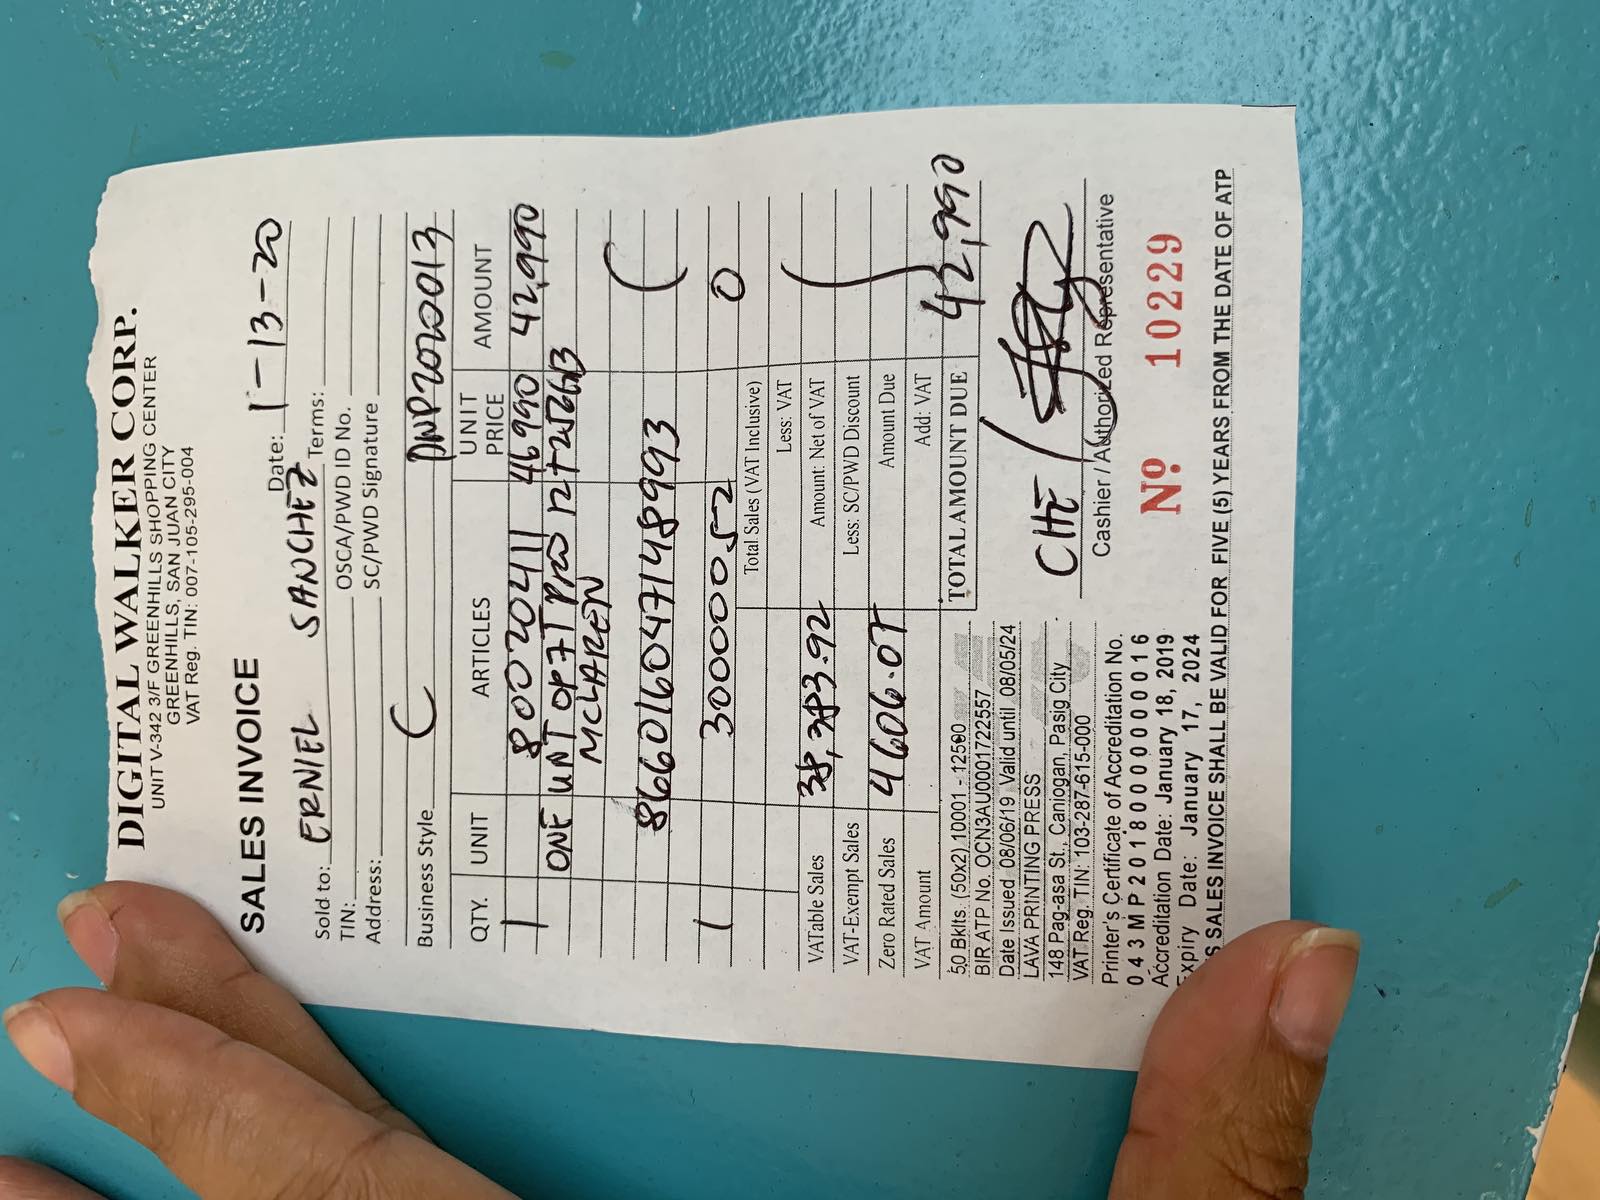 DIGITAL WALKER CORP.
UNIT V-342 3/F GREENHILLS SHOPPING CENTER
GREENHILLS, SAN JUAN CITY
VAT Reg. TIN: 007-105-295-004
SALES INVOICE
Date: 1-13-20
Sold to: ERNIEL SANCHEZ Terms:
TIN: OSCA/PWD ID No.
Address: SC/PWD Signature
Business Style C DWP2020013
QTY. UNIT ARTICLES UNIT PRICE AMOUNT
1 80020411 46990 42,990
ONE UNT OP7T PRO 12+256GB
MCLAREN
866016047148993
1 30000052 0
Total Sales (VAT Inclusive)
Less: VAT
VATable Sales 38,383.92 Amount: Net of VAT
VAT-Exempt Sales Less: SC/PWD Discount
Zero Rated Sales 4606.07 Amount Due
VAT Amount Add: VAT
TOTAL AMOUNT DUE 42,990
50 Bklts. (50x2) 10001 - 12500
BIR ATP No. OCN3AU0001722557
Date Issued 08/06/19 Valid until 08/05/24
LAVA PRINTING PRESS
148 Pag-asa St., Caniogan, Pasig City
VAT Reg. TIN: 103-287-615-000
CHE /
Cashier / Authorized Representative
Printer's Certificate of Accreditation No.
043MP20180000000016
Accreditation Date: January 18, 2019
Expiry Date: January 17, 2024
Nº 10229
SALES INVOICE SHALL BE VALID FOR FIVE (5) YEARS FROM THE DATE OF ATP